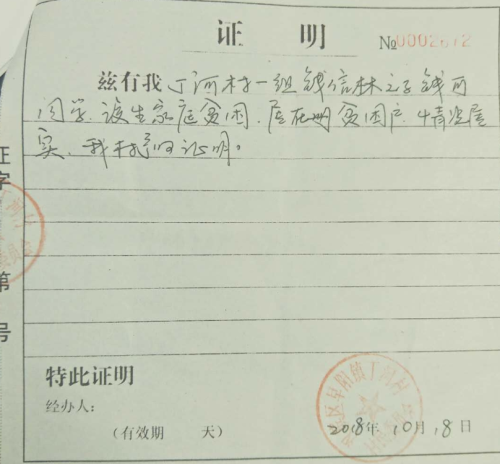 证 明
№0002672
兹有我丁河村一组钱信林之子钱可
同学.该生家庭贫困.居在册贫困户.情况属
实.我村予以证明。
证字
第
号
特此证明
经办人:
(有效期 天)
2018年10月18日
区阜阳镇丁河村